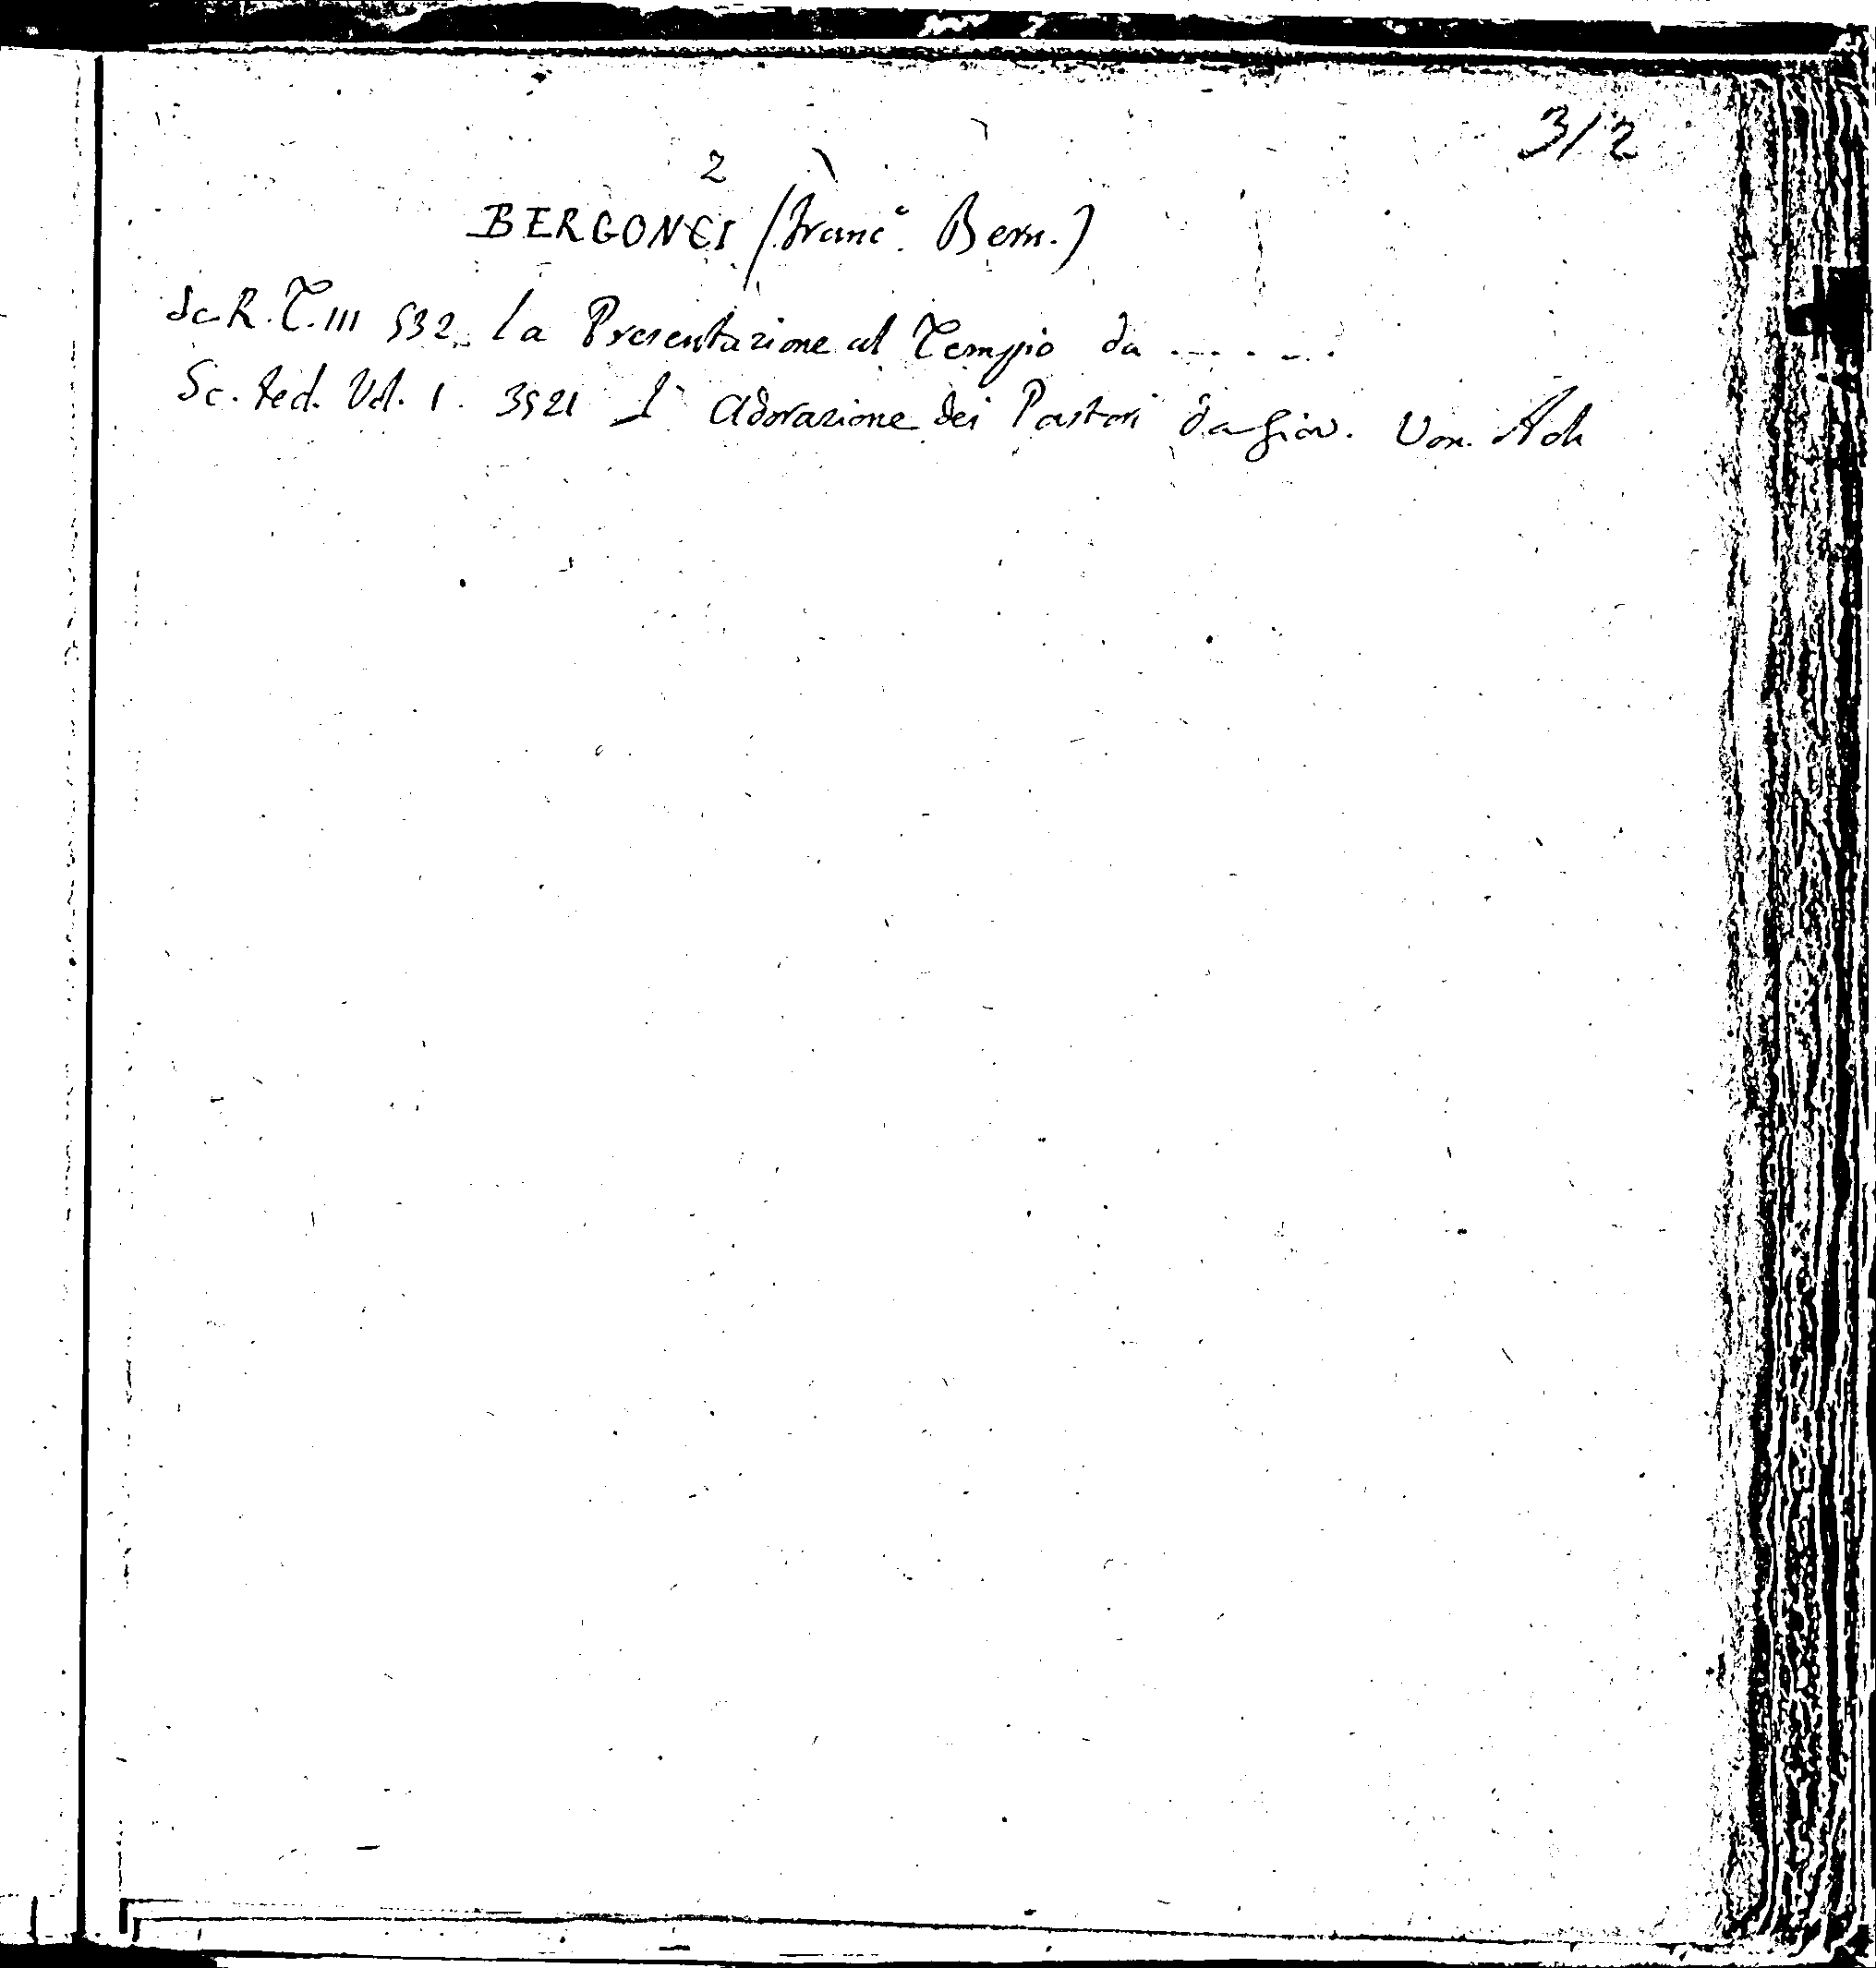 3/2
2
BERGONCI (Franc.º Bern.)
Sc. R. T. III 532. La Presentazione al Tempio da . . . . . .
Sc. ted. Vol. 1. 3521 L' Adorazione dei Pastori da Giov. Von. Ach